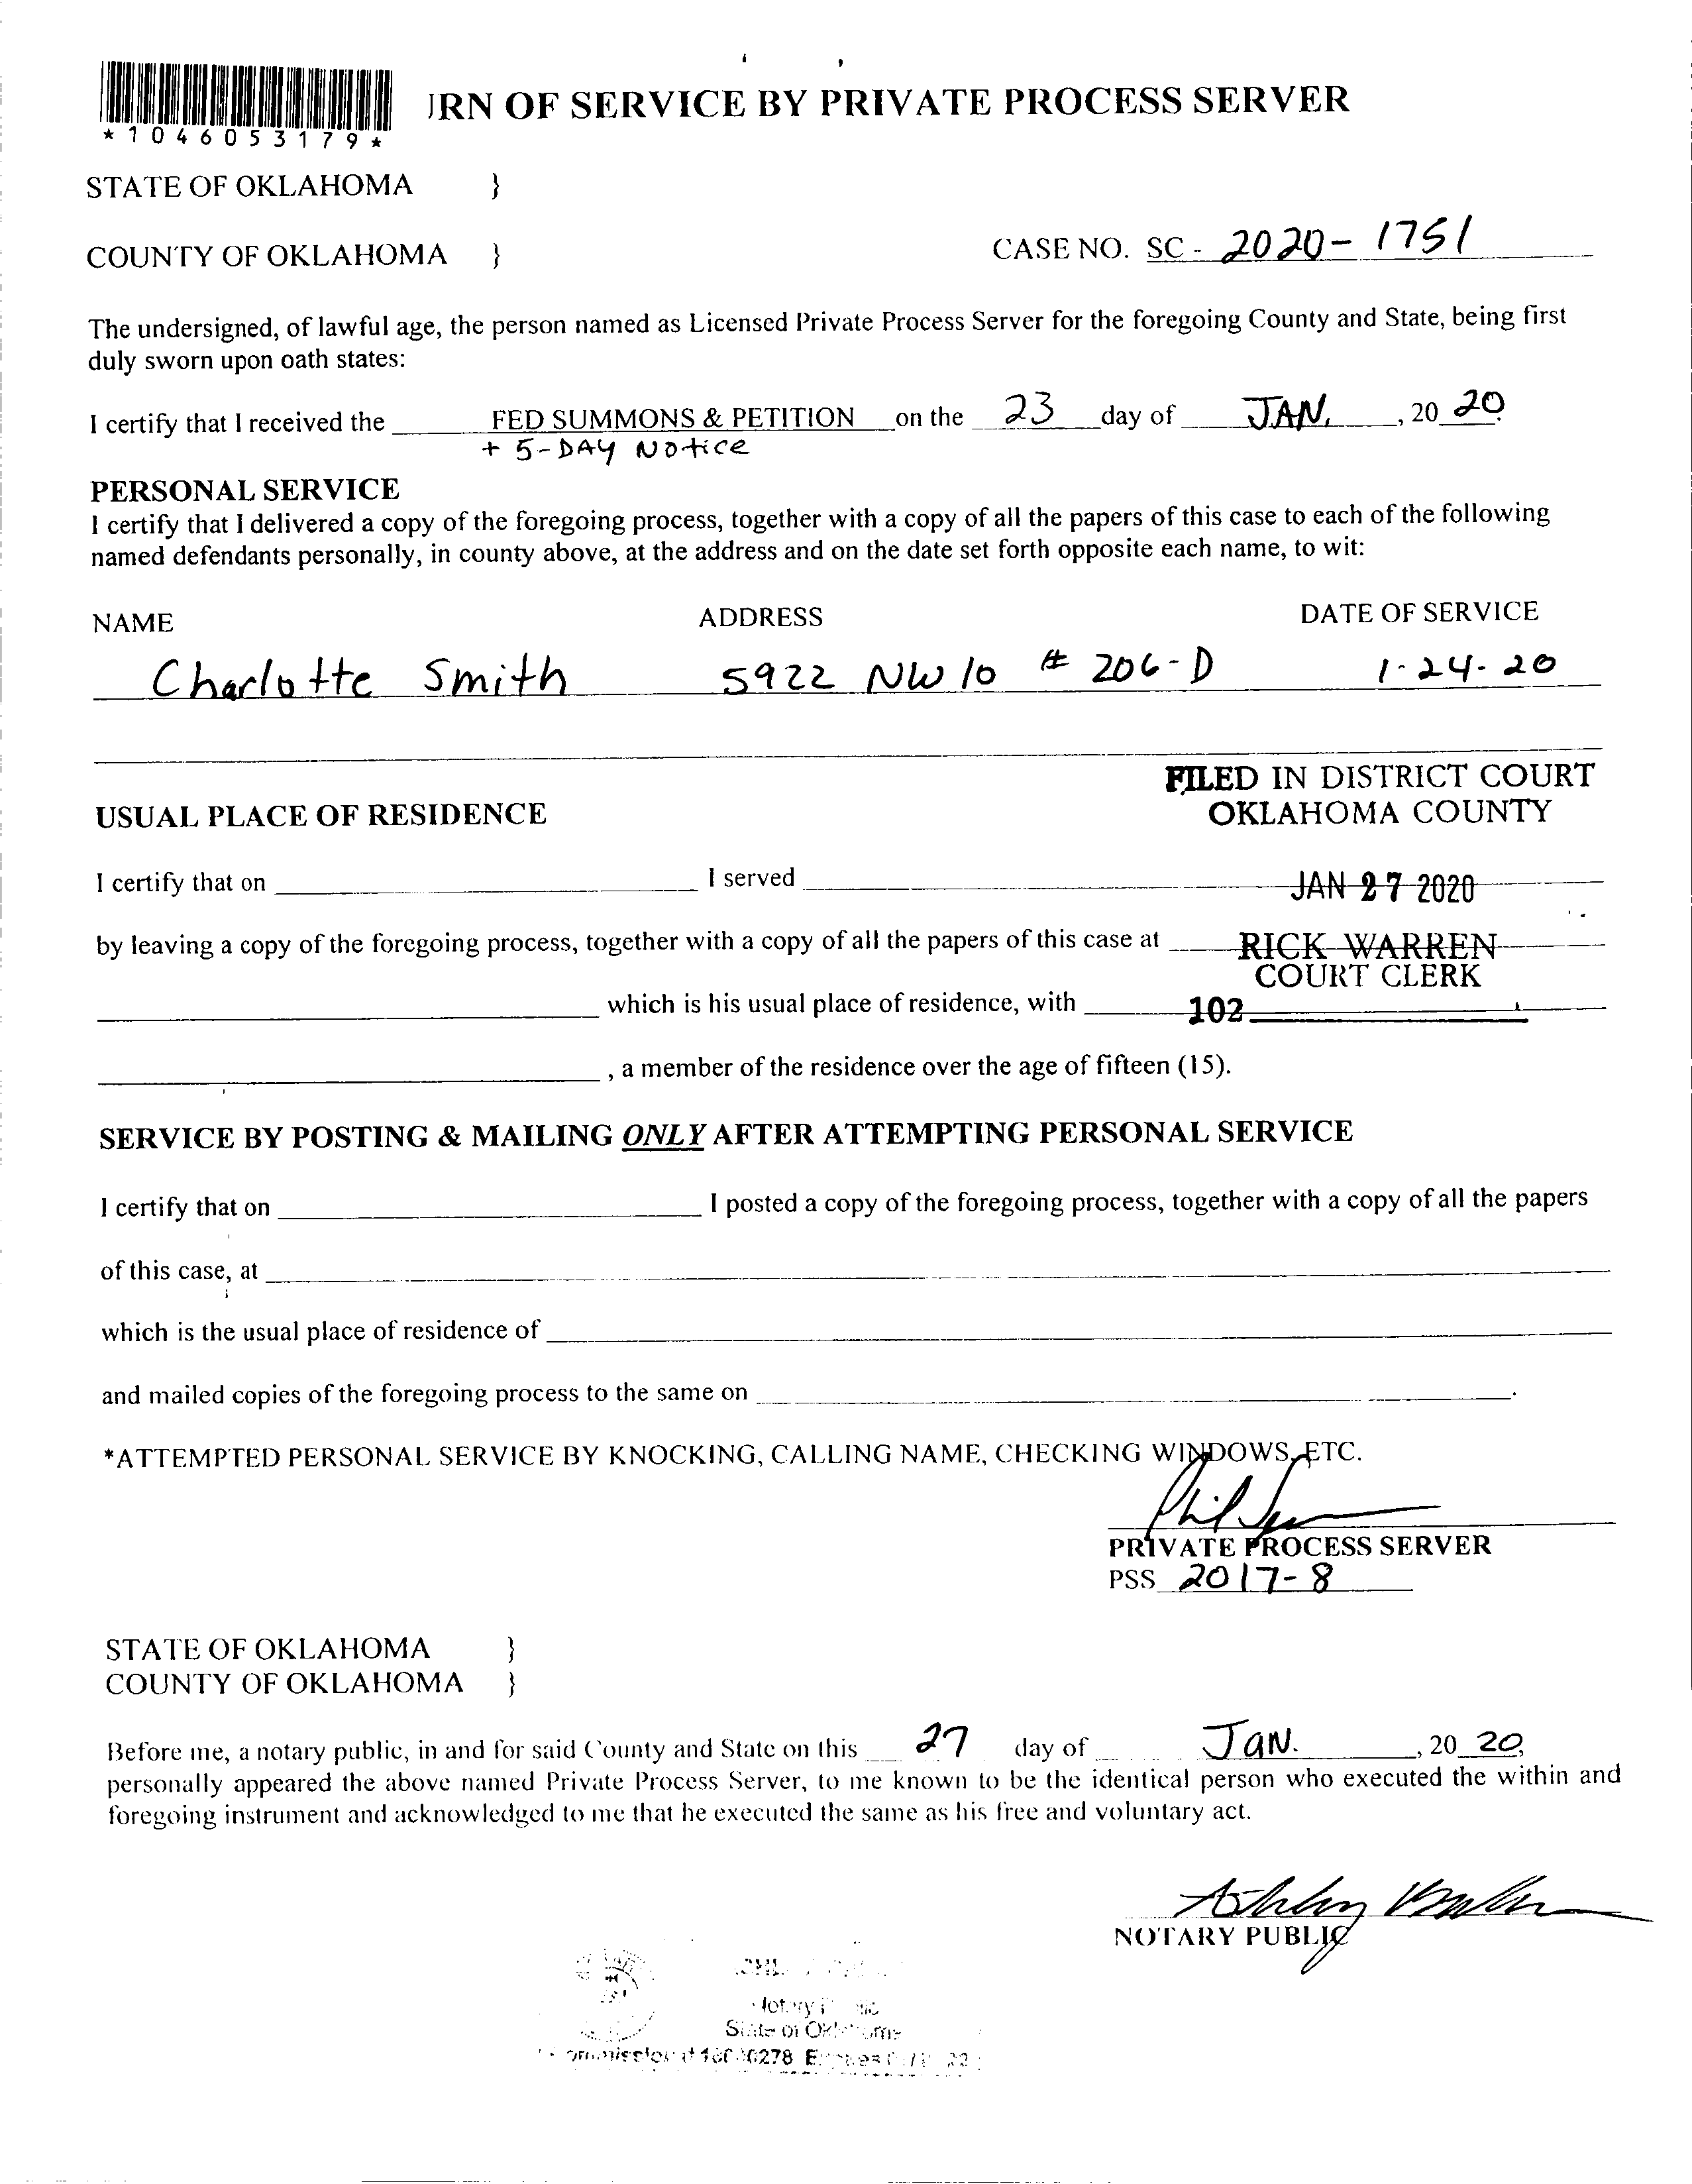 JRN OF SERVICE BY PRIVATE PROCESS SERVER
*1046053179*
STATE OF OKLAHOMA }
COUNTY OF OKLAHOMA } CASE NO. SC - 2020-1751
The undersigned, of lawful age, the person named as Licensed Private Process Server for the foregoing County and State, being first
duly sworn upon oath states:
I certify that I received the FED SUMMONS & PETITION on the 23 day of JAN. , 20 20.
+ 5-DAY NOtice
PERSONAL SERVICE
I certify that I delivered a copy of the foregoing process, together with a copy of all the papers of this case to each of the following
named defendants personally, in county above, at the address and on the date set forth opposite each name, to wit:
NAME ADDRESS DATE OF SERVICE
Charlotte Smith 5922 NW 10 # 206-D 1-24-20
FILED IN DISTRICT COURT
OKLAHOMA COUNTY
USUAL PLACE OF RESIDENCE
I certify that on I served JAN 27 2020
by leaving a copy of the foregoing process, together with a copy of all the papers of this case at RICK WARREN
COURT CLERK
which is his usual place of residence, with 102
, a member of the residence over the age of fifteen (15).
SERVICE BY POSTING & MAILING ONLY AFTER ATTEMPTING PERSONAL SERVICE
I certify that on I posted a copy of the foregoing process, together with a copy of all the papers
of this case, at
which is the usual place of residence of
and mailed copies of the foregoing process to the same on .
*ATTEMPTED PERSONAL SERVICE BY KNOCKING, CALLING NAME, CHECKING WINDOWS, ETC.
Phil
PRIVATE PROCESS SERVER
PSS 2017-8
STATE OF OKLAHOMA }
COUNTY OF OKLAHOMA }
Before me, a notary public, in and for said County and State on this 27 day of JaN. , 20 20,
personally appeared the above named Private Process Server, to me known to be the identical person who executed the within and
foregoing instrument and acknowledged to me that he executed the same as his free and voluntary act.
Ashley
NOTARY PUBLIC
Notary Public
State of Oklahoma